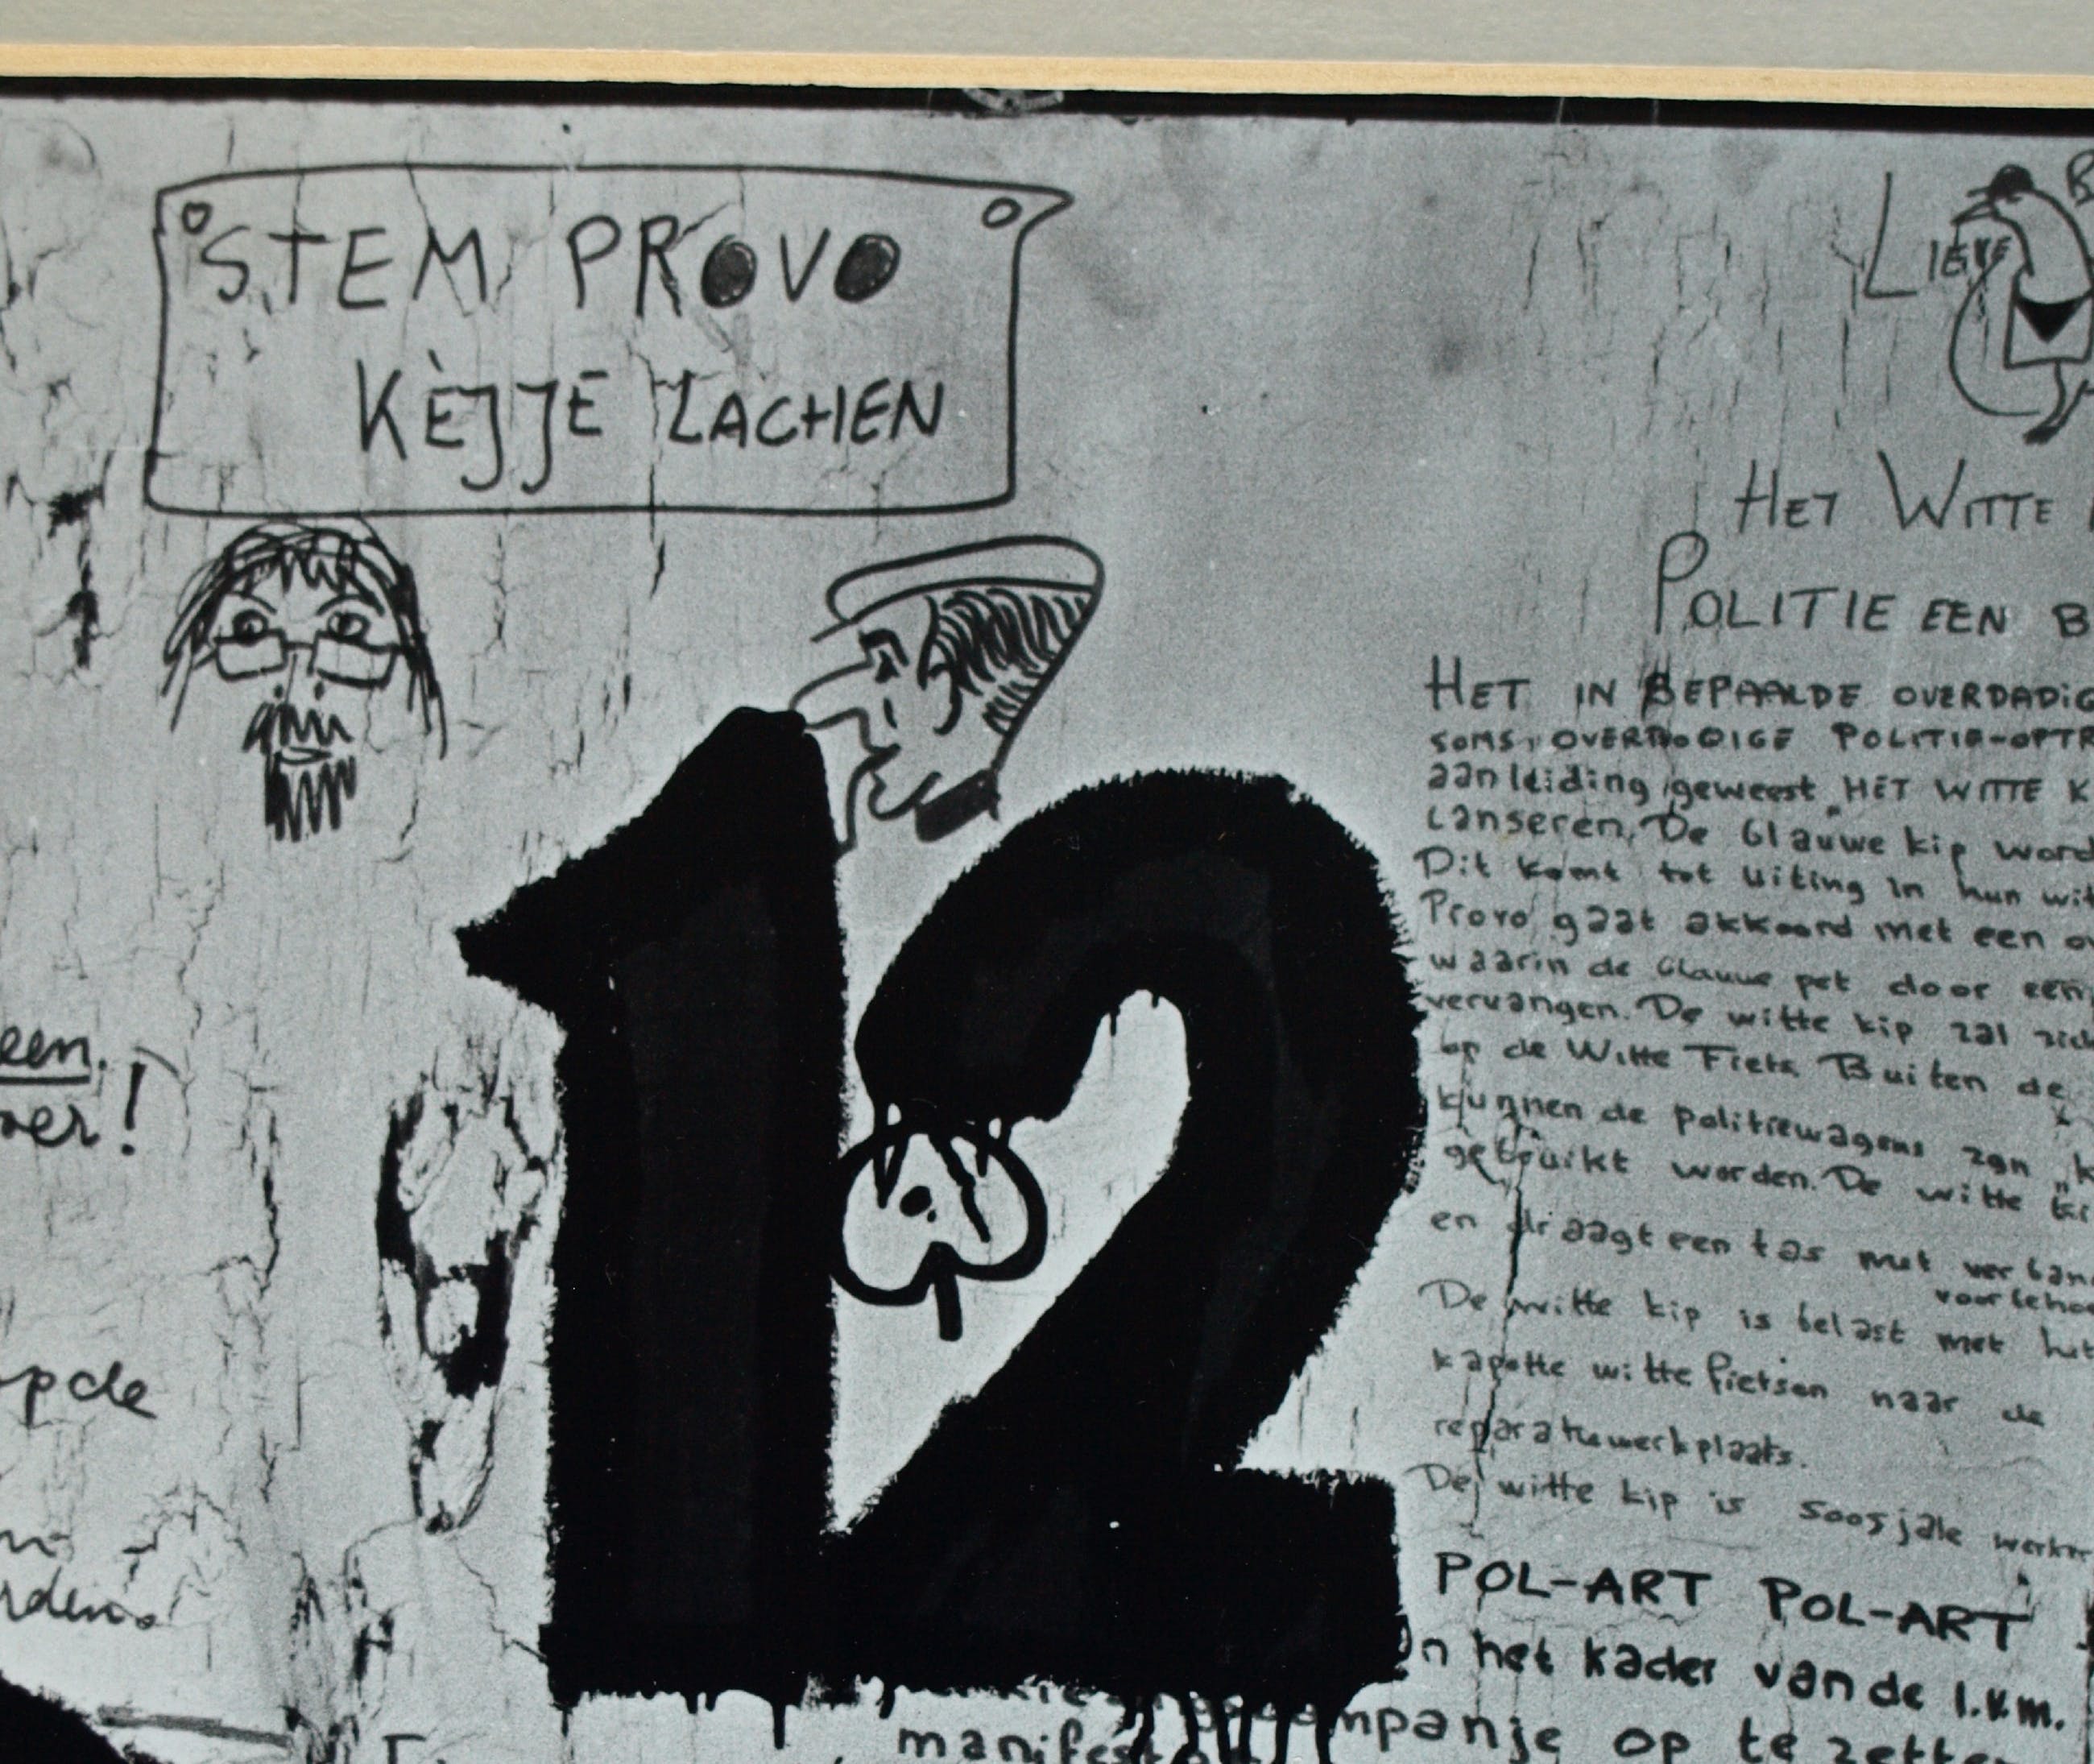 STEM PROVO
KÈJJE LACHEN
LIEVE
HET WITTE
POLITIE EEN B
HET IN BEPAALDE OVERDADIG
SOMS OVERBODIGE POLITIE-OPTR
aanleiding geweest „HET WITTE K
Lanseren. De blauwe kip word
Dit komt tot uiting in hun wit
Provo gaat akkoord met een o
waarin de blauwe pet door een
vervangen. De witte kip zal zich
op de Witte Fiets Buiten de
kunnen de politiewagens zgn „k
gebruikt worden. De witte ki
en draagt een tas met verban
voorbeho
De witte kip is belast met het
kapotte witte fietsen naar de
reparatiewerkplaats.
De witte kip is soosjale werker
12
een
ver!
op de
rdens
POL-ART POL-ART
In het kader van de I.V.M.
campanje op te zette
manifest